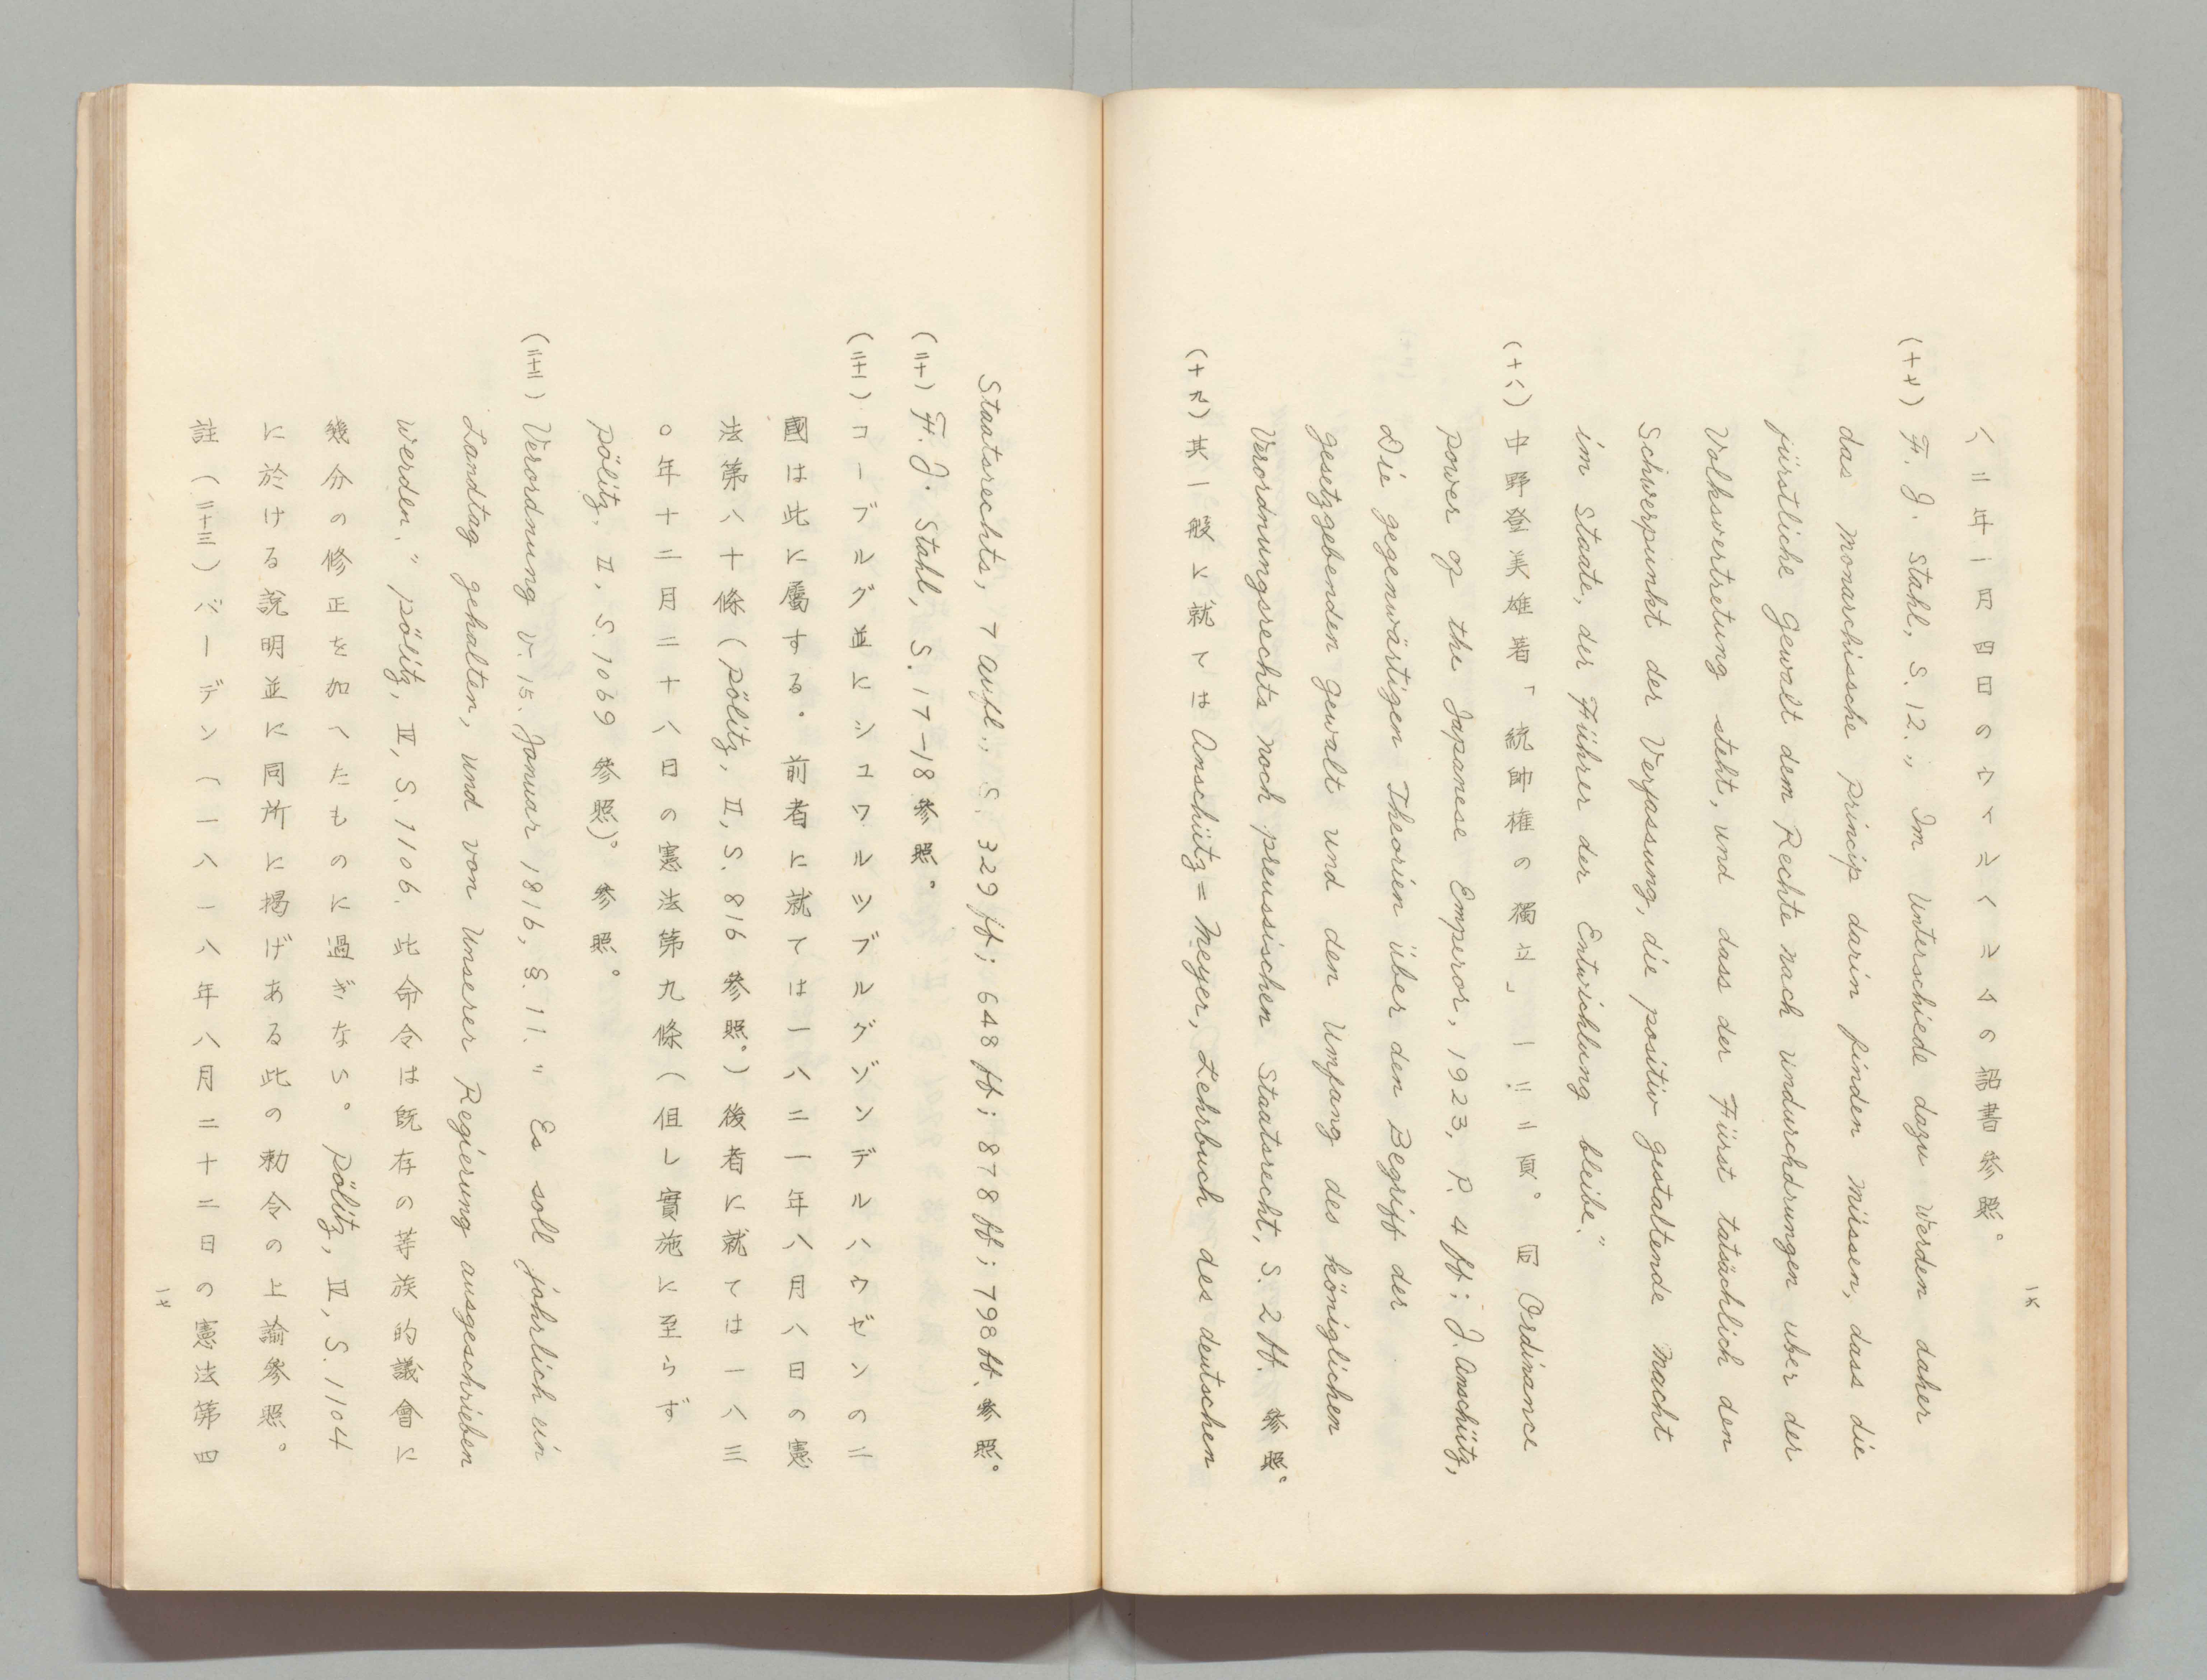 一六
八二年一月四日のウイルヘルムの詔書參照。
(十七) F. J. Stahl, S. 12. „ Im Unterschiede dazu werden daher
das monarchische Princip darin finden müssen, dass die
fürstliche Gewalt dem Rechte nach undurchdrungen über der
Volksvertretung steht, und dass der Fürst tatsächlich den
Schwerpunkt der Verfassung, die positiv gestaltende Macht
im Staate, der Führer der Entwicklung bleibe.“
(十八) 中野登美雄著「統帥權の獨立」一二二頁。同 Ordinance
Power of the Japanese Emperor, 1923, P. 4 ff; J. Anschütz,
Die gegenwärtigen Theorien über den Begriff der
gesetzgebenden Gewalt und den Umfang des königlichen
Verordnungsrechts noch preussischen Staatsrecht, S. 2 ff. 參照。
(十九) 其一般に就ては Anschütz = Meyer, Lehrbuch des deutschen
Staatsrechts, 7 Aufl., S. 329 ff; 648 ff; 878 ff; 798 ff. 參照。
(二十) F. J. Stahl, S. 17–18 參照。
(二十一) コーブルグ並にシユワルツブルグゾンデルハウゼンの二
國は此に屬する。前者に就ては一八二一年八月八日の憲
法第八十條(Pölitz, II, S. 816 參照。)後者に就ては一八三
〇年十二月二十八日の憲法第九條(但し實施に至らず
Pölitz, II, S. 1069 參照)。參照。
(二十二) Verordnung v. 15. Januar 1816, §. 11. „ Es soll jährlich ein
Landtag gehalten, und von Unserer Regierung ausgeschrieben
werden.“ Pölitz, II, S. 1106. 此命令は既存の等族的議會に
幾分の修正を加へたものに過ぎない。Pölitz, II, S. 1104
に於ける說明並に同所に揭げある此の勅令の上諭參照。
註(二十三)バーデン(一八一八年八月二十二日の憲法第四
一七